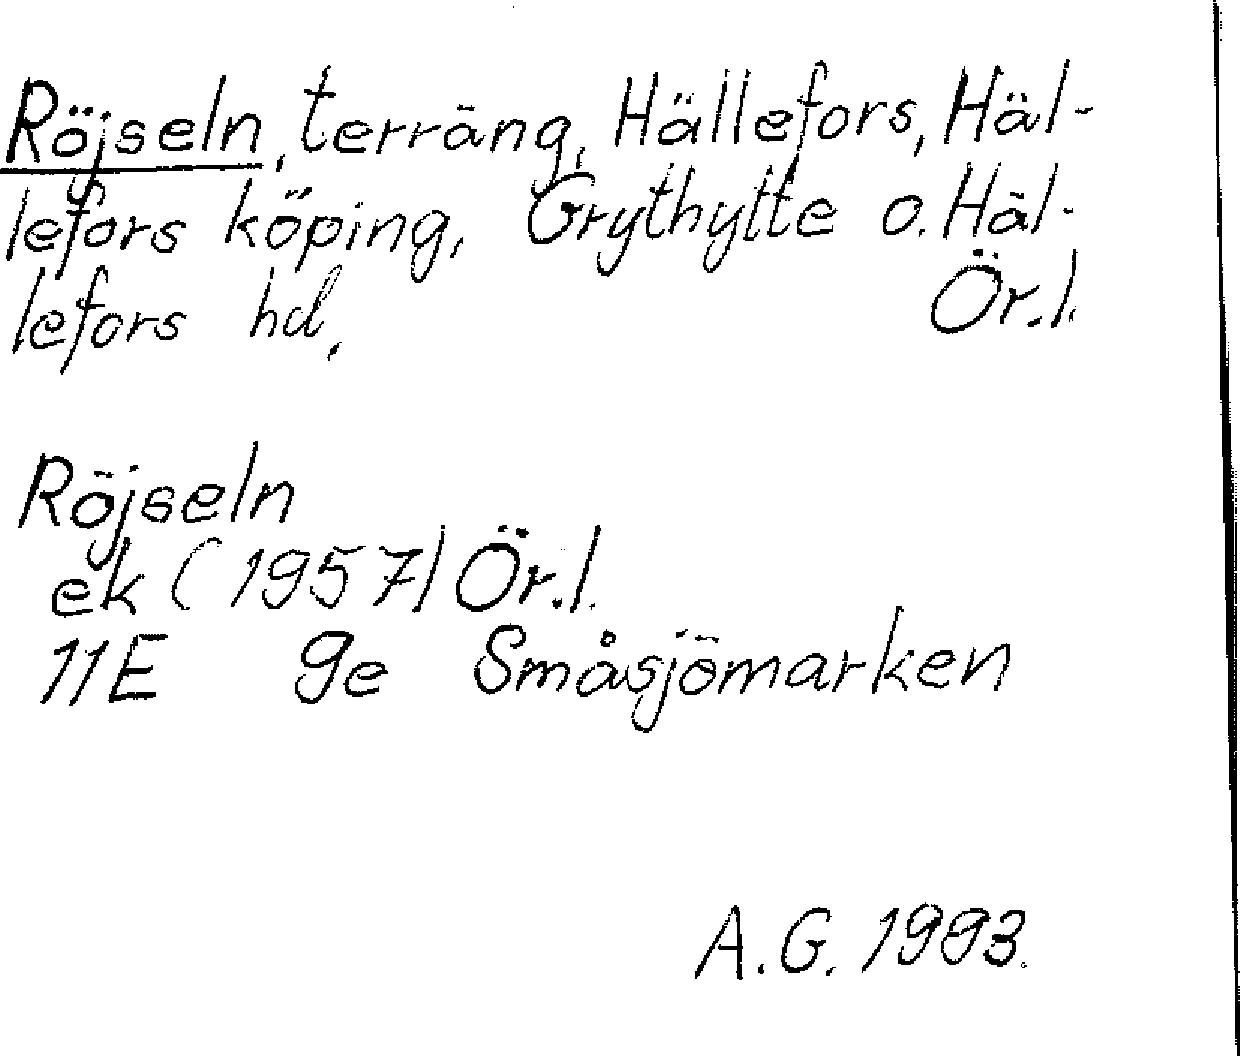 Röjseln, terräng, Hällefors, Häl-
lefors köping, Grythytte o. Häl-
lefors hd,
Ör.l.
Röjseln
ek (1957) Ör.l.
11E 9e Småsjömarken
A.G. 1993.